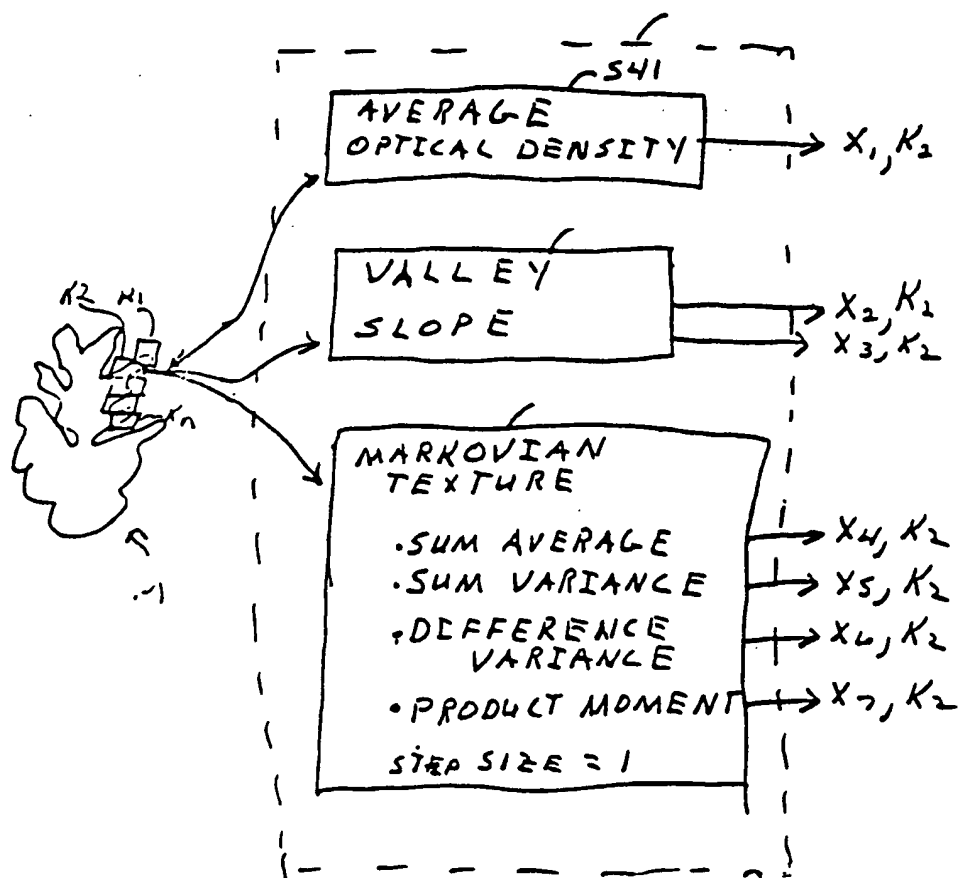 541
AVERAGE
OPTICAL DENSITY
X1, K2
VALLEY
SLOPE
X2, K2
X3, K2
K2 K1
Kn
MARKOVIAN
TEXTURE
•SUM AVERAGE
•SUM VARIANCE
•DIFFERENCE
VARIANCE
•PRODUCT MOMENT
STEP SIZE = 1
X4, K2
X5, K2
X6, K2
X7, K2